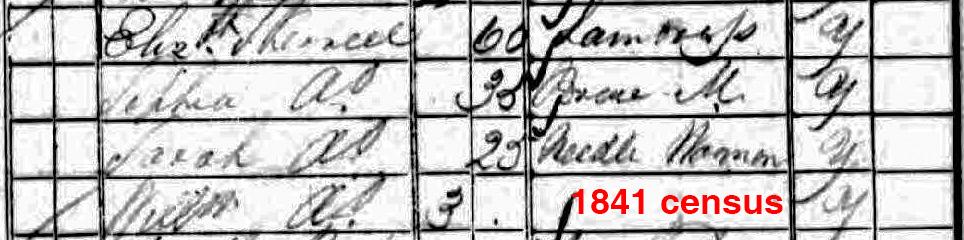 Elizth 60 Laundress y
Sophia Do 35 M. y
Sarah Do 25 Needle Woman y
Willm Do 3 y
1841 census